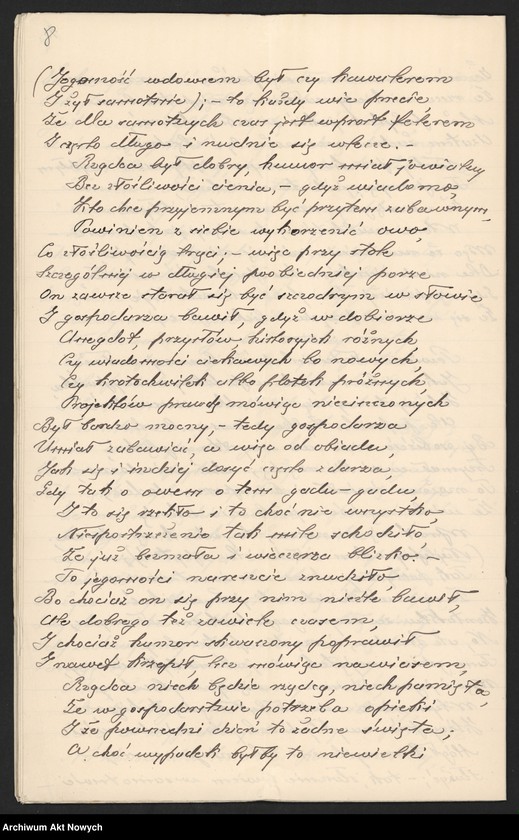 8
(Jegomość wdowcem był czy kawalerem
I żył samotnie); – to każdy wie przecie,
Że dla samotnych czas jest wprost
I często długo i nudnie się wlecze. –
Rządca był dobry, humor miał jowialny
Bez złośliwości cienia, – gdyż wiadomo,
Kto chce przyjemnym być przytem zabawnym,
Powinien z siebie wykorzenić owo,
Co złośliwością trąci; – więc przy stole
Szczególniej w długiej poobiedniej porze
On zawsze starał się być szczodrym w słowie
I gospodarza bawił, gdyż w doborze
Anegdot, przysłów, historyjek różnych,
Czy wiadomości ciekawych bo nowych,
Czy krotochwilek albo plotek próżnych,
Projektów prawdę mówiąc nieziszczonych
Był bardzo mocny, – tedy gospodarza
Umiał zabawiać, a więc od obiadu,
Jak się i indziej dosyć często zdarza,
Gdy tak o owem o tem gadu-gadu,
I to się rzekło i to choć nie wszystko,
Niespostrzeżenie tak mile schodziło,
Że już bezmała i wieczerza blizko. –
To jegomości nareszcie znudziło,
Bo chociaż on się przy nim nieźle bawił,
Ale dobrego też zawiele czasem,
I chociaż humor skwaszony poprawił
I nawet krzepił, bez mówiąc nawiasem,
Rządca niech będzie rządcą, niech pamięta,
Że w gospodarstwie potrzeba opieki
I że powszedni dzień to żadne święta;
A choć wypadek byłby to niewielki
Archiwum Akt Nowych